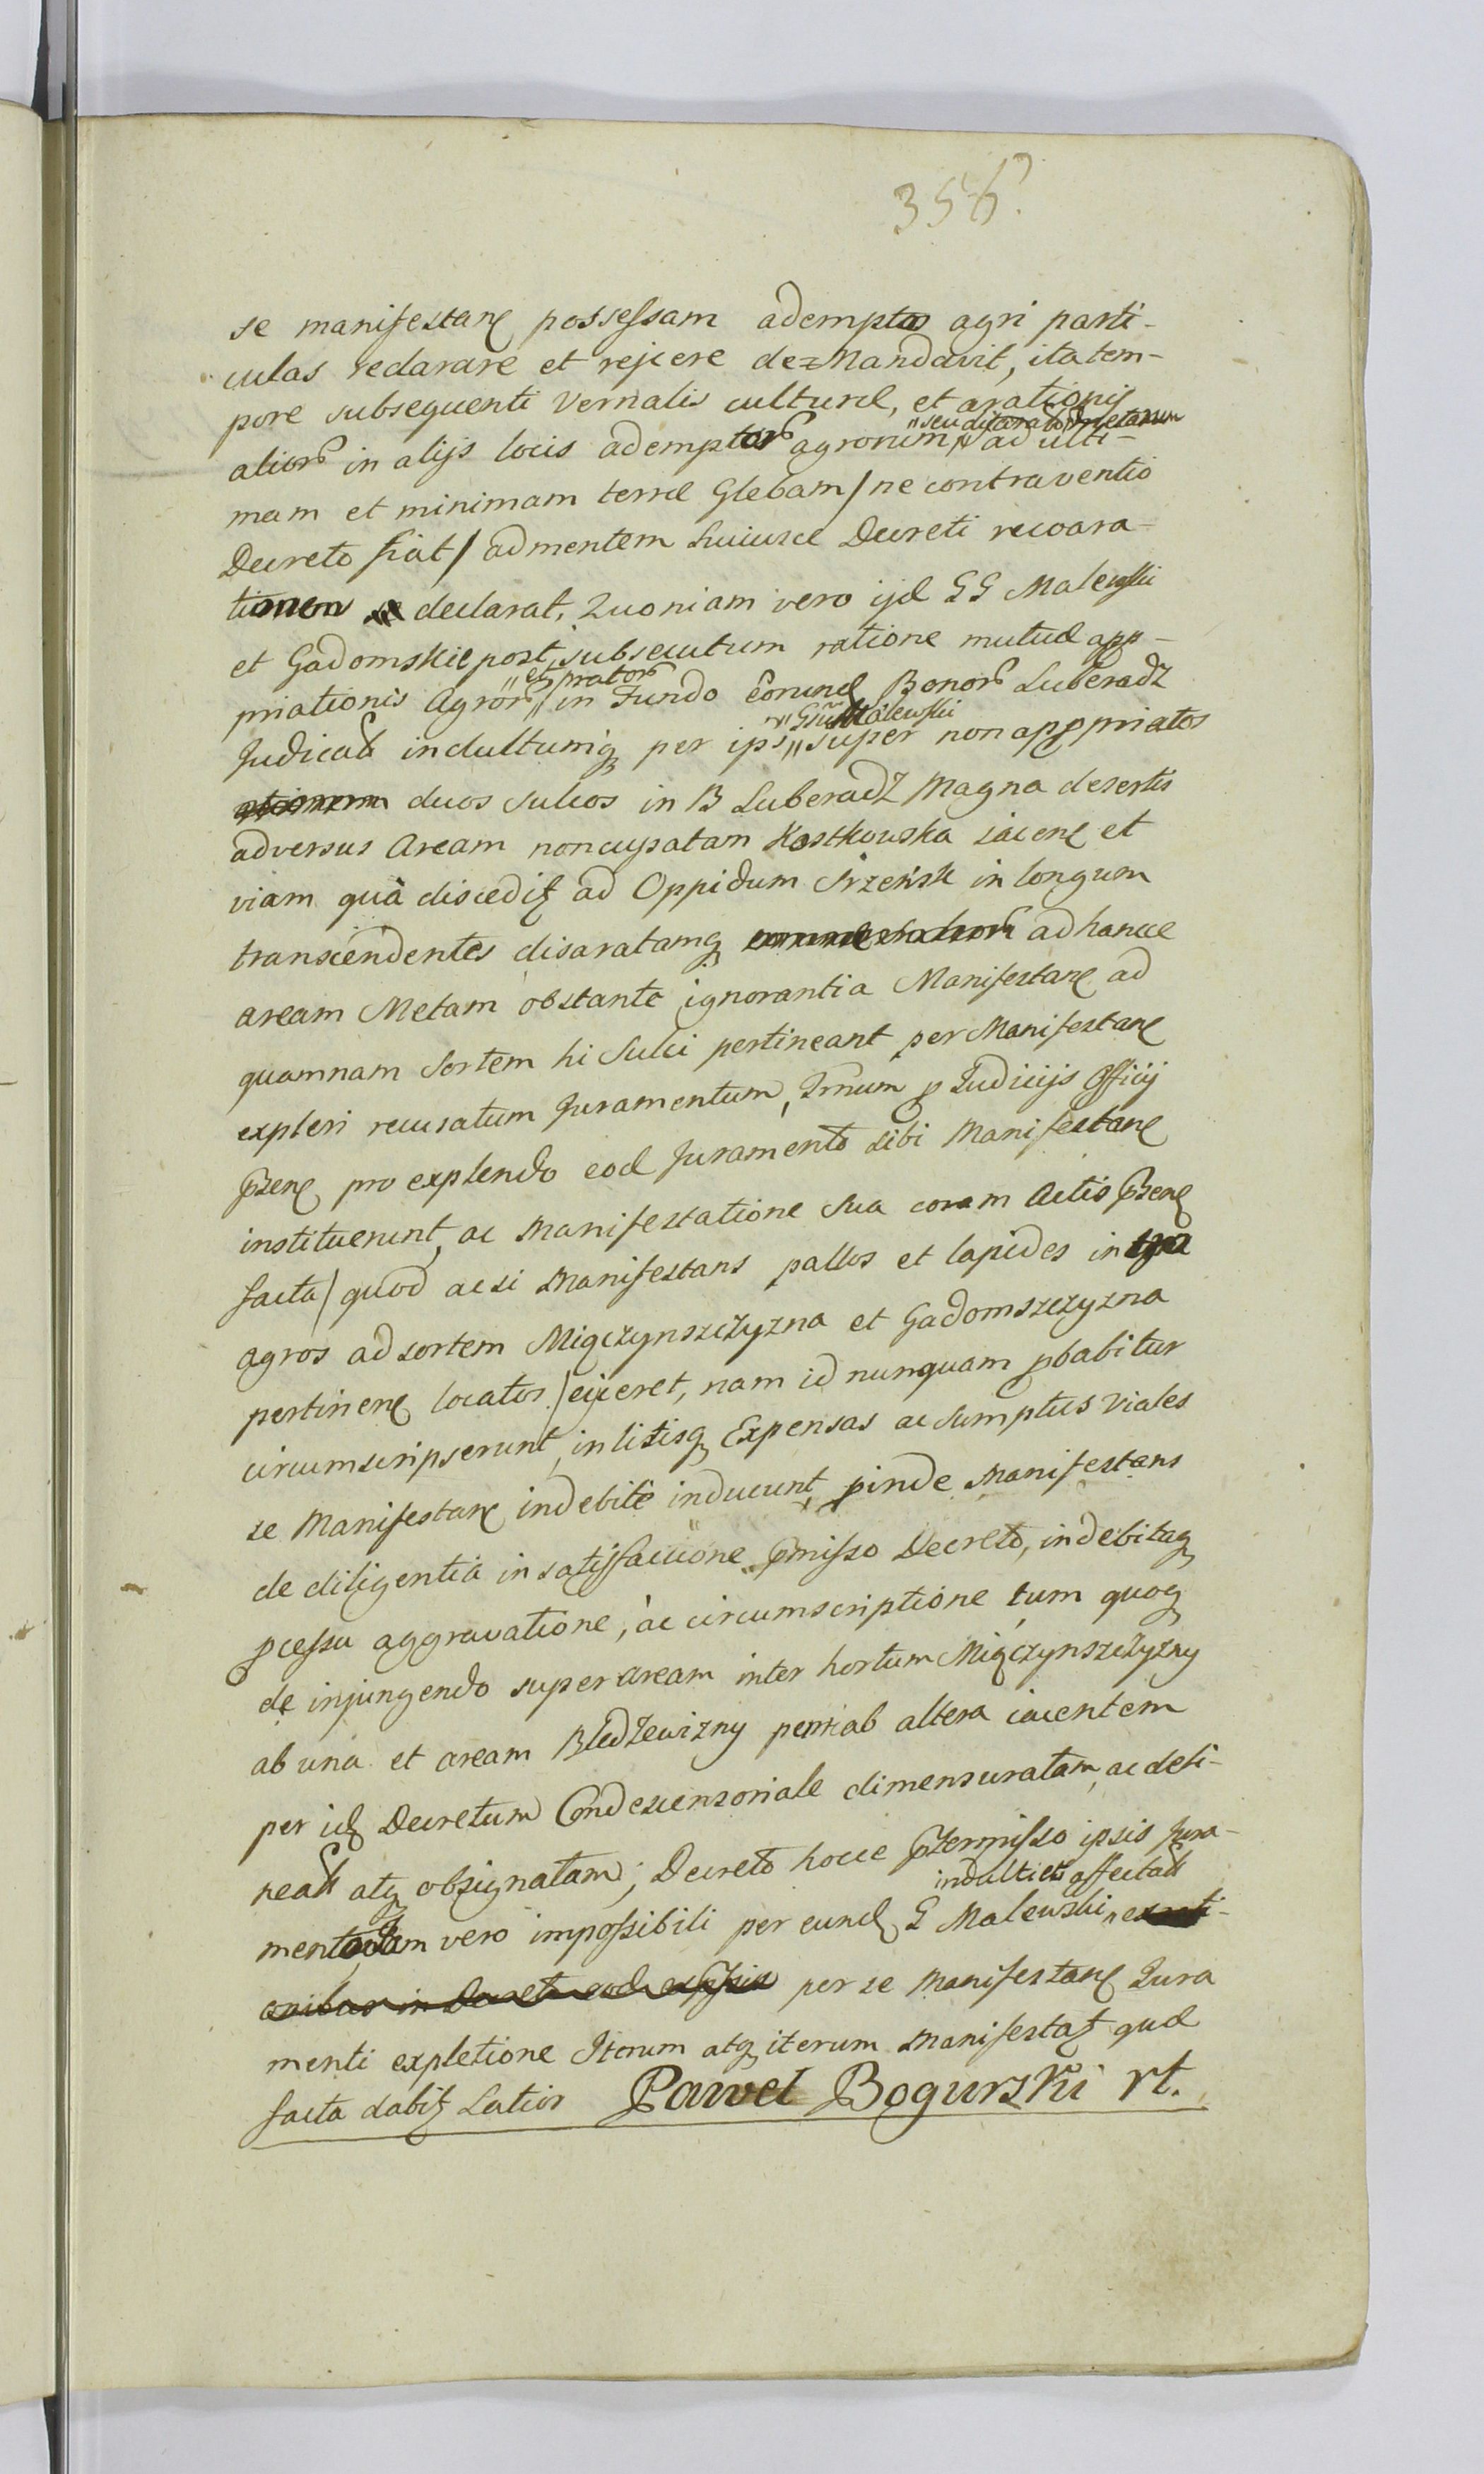 356?
se manifestanę possessam ademptas agri parti-
culas redarare et rejicere demandavit, ita tem-
pore subsequenti vernalis culturæ, et arationis
"seu disaratar metarum
alior in alijs locis ademptor agrorum "ad ulti-
mam et minimam terræ Glebam / ne contraventio
Decreto fiat / ad mentem huiusce Decreti recoara-
tionem declarat, Quoniam vero ijd GG Malewski
et Gadomskie post subsecutum ratione mutuæ app-
"et prator
priationis Agror "in Fundo eorund Bonor Luberadz
"Gsum Malewski
Judicat indultumq per ips "super non appriatos
duos sulcos in B Luberadz Magna desertis
adversus Aream noncupatam Kostkowska iacenę et
viam quà disceditz ad Oppidum Srzeńsk in longum
transcendentes disaratamq ad hancce
aream Metam obstante ignorantia Manifestanę ad
quamnam Sortem hi Sulci pertineant per Manifestanę
expleri recusatum Juramentum, Trnum p Judicijs Officij
pzenę pro explendo eod Juramento sibi Manifestanę
instituerunt, ac Manifestatione sua coram Actis pzenę
facta / quod ac si Manifestans pallos et lapides in
agros ad sortem Miączynszczyzna et Gadomszczyzna
pertinenę locator / ejiceret, nam id nunquam pbabitur
circumscripserunt, in litisq Expensas ac Sumptus viales
se Manifestanę indebitè inducunt, pinde Manifestans
de diligentia in satisfactione pmisso Decreto, indebitaq
pcessu aggravatione, ac circumscriptione, tum quoq
de injungendo super aream inter hortum Miączynszczyzny
ab una et aream Bledzewizny ab altera iacentem
per id Decretum Condescensoriale dimensuratam, ac deli-
neat atq obsignatam; Decreto hocce ptermisso ipsis Jura-
indulti et affectat
mento vero impossibili per eund G Malewski
per se Manifestanę Jura
menti expletione Iterum atq iterum Manifestatz quæ
facta dabitz Latior Paweł Bogurski rt.